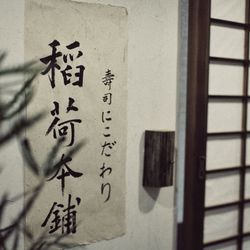 寿司にこだわり
稲荷本舗